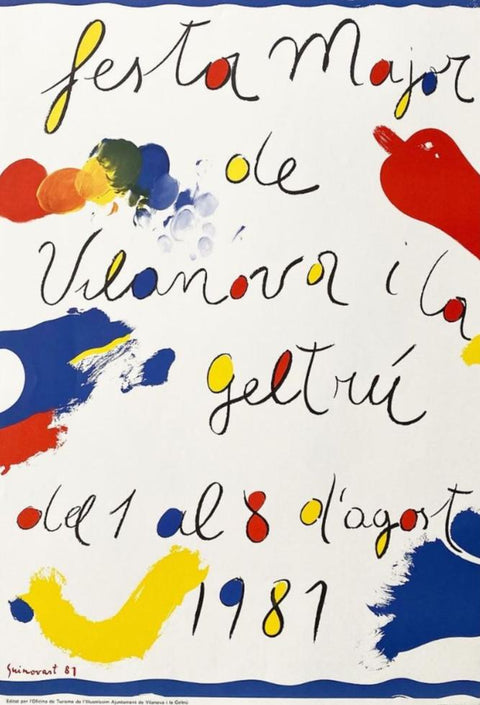 festa Major
de
Vilanova i la
geltrú
del 1 al 8 d'agost
1981
Guinovart 81
Editat per l'Oficina de Turisme de l'Il·lustríssim Ajuntament de Vilanova i la Geltrú